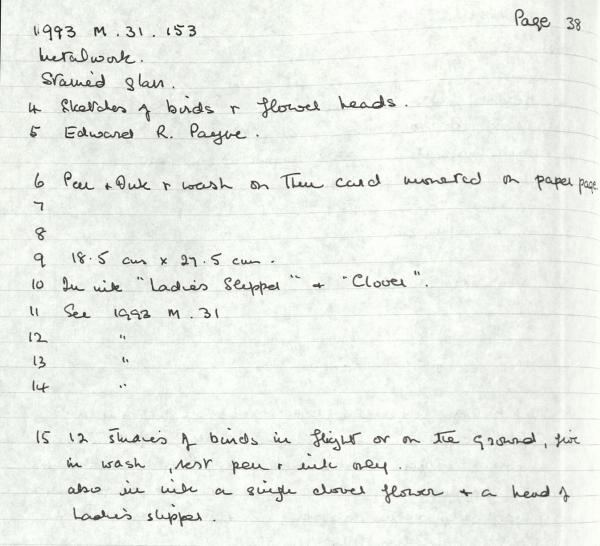 Page 38
1993 M.31.153
Metalwork.
Stained glass.
4 Sketches of birds + flower heads.
5 Edward R. Payne.
6 Pen + Ink + wash on Thin card mounted on paper page.
7
8
9 18.5 cms x 27.5 cms.
10 In ink "Ladies Slipper" + "Clover".
11 See 1993 M.31
12 "
13 "
14 "
15 12 studies of birds in flight or on the ground, five
in wash, rest pen + ink only.
also in ink a single clover flower + a head of
Ladies slipper.